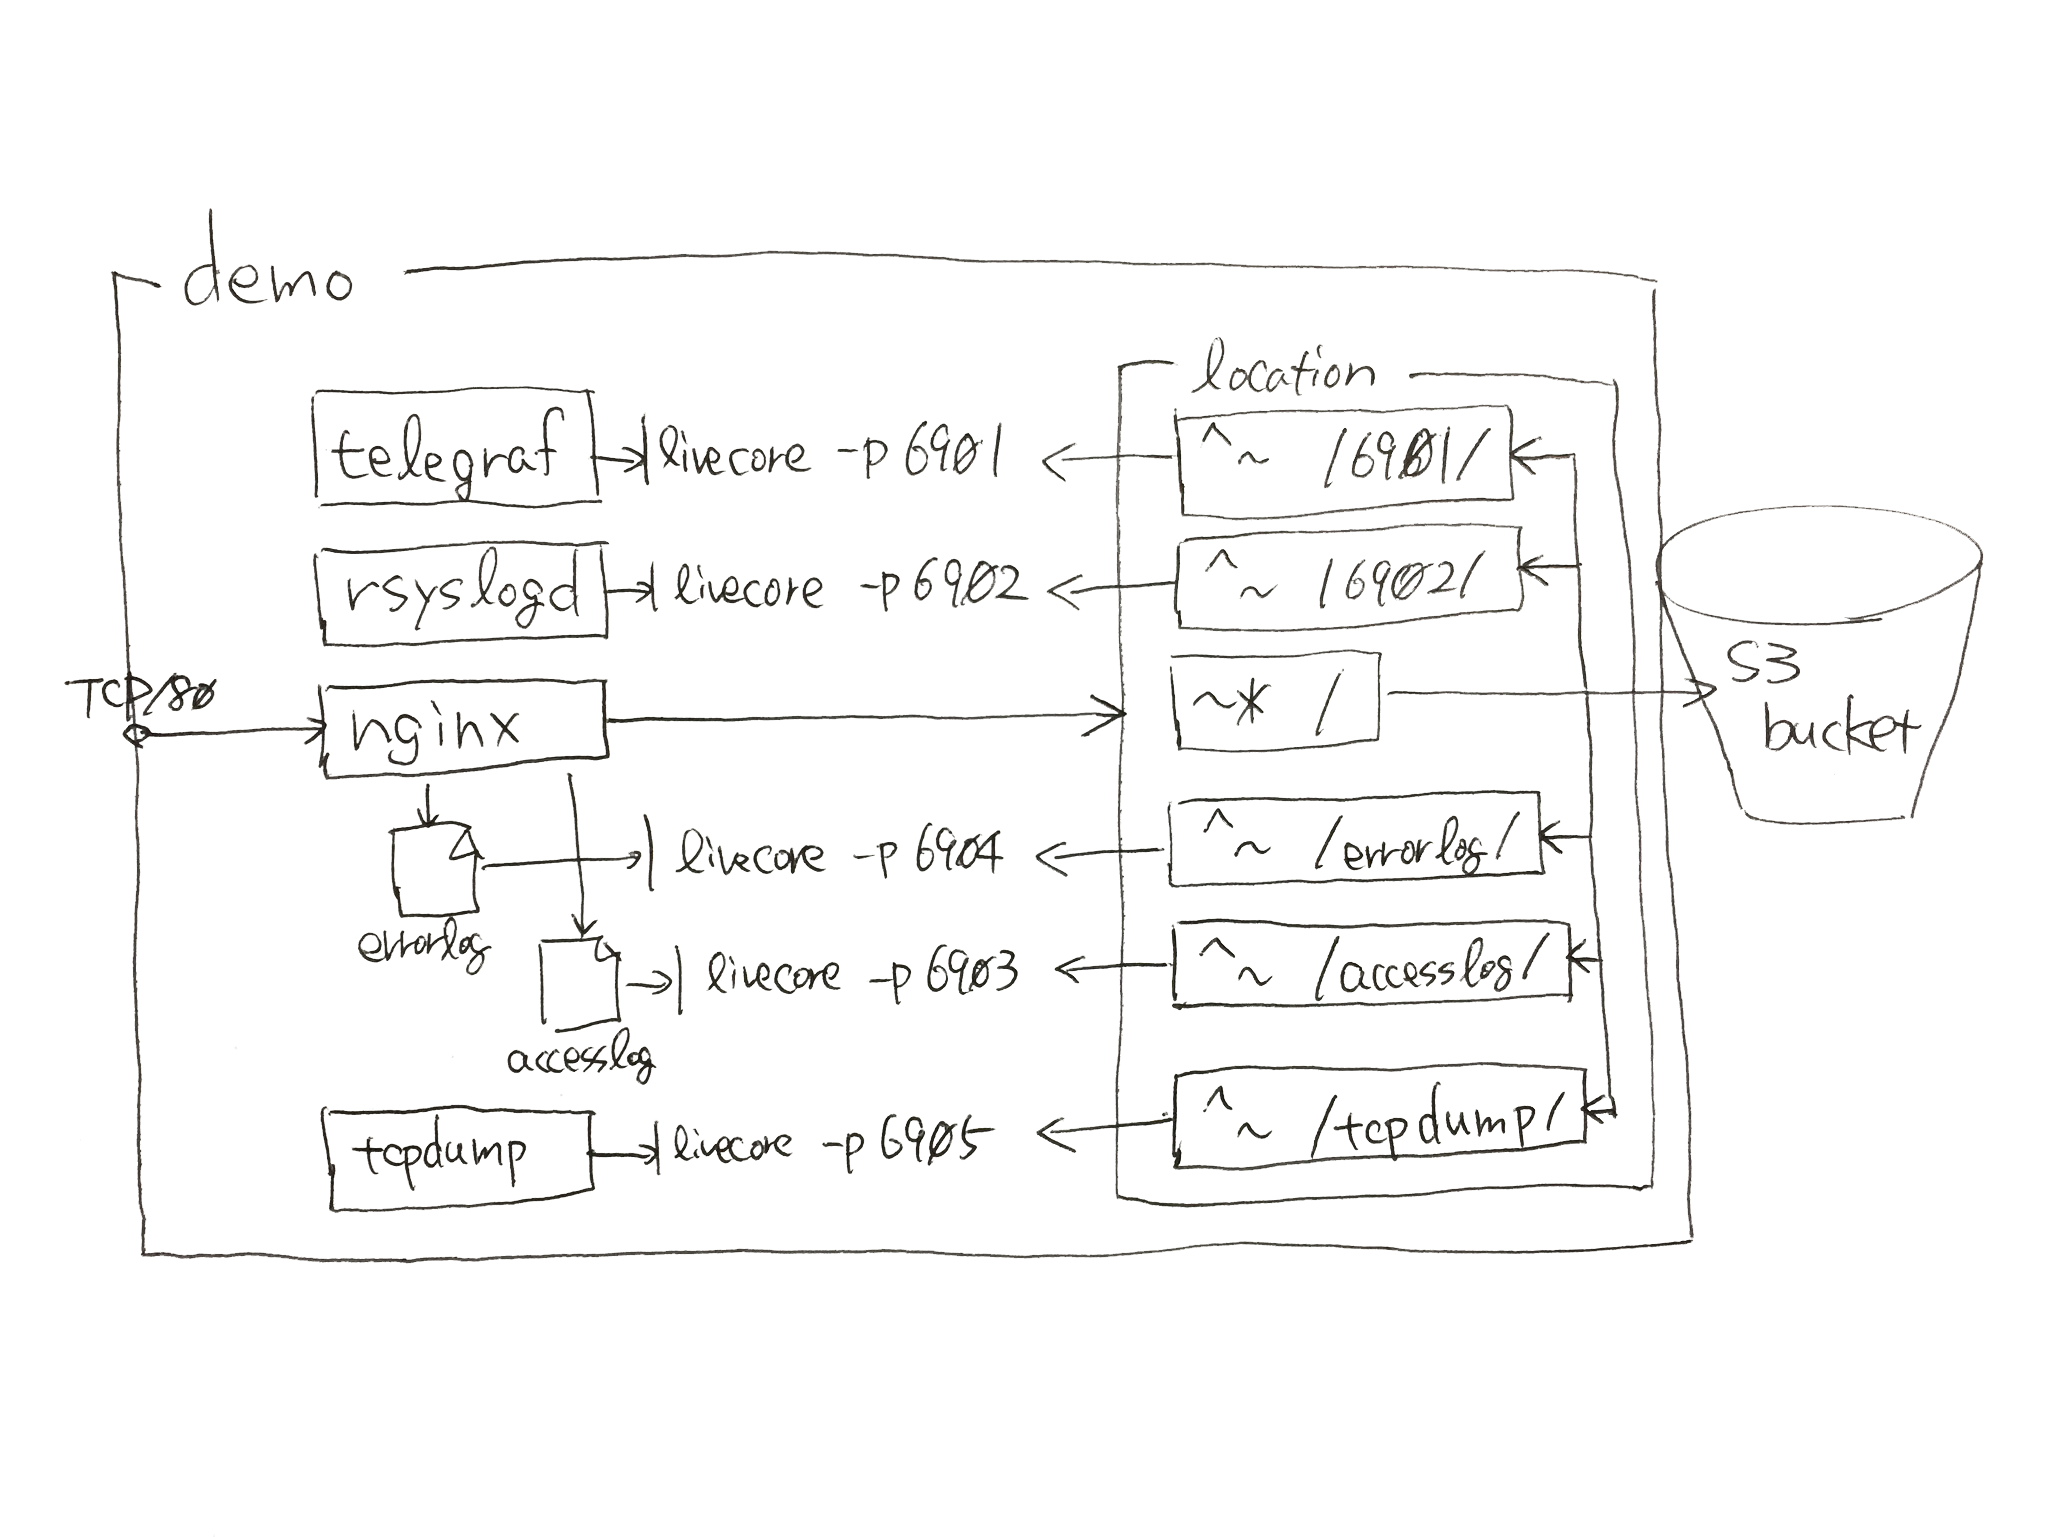 demo
location
telegraf →| livecore -p 6901 ← ^~ /6901/
rsyslogd →| livecore -p 6902 ← ^~ /6902/
TCP/80
nginx
~* /
S3
bucket
→| livecore -p 6904 ← ^~ /errorlog/
errorlog
→| livecore -p 6903 ← ^~ /accesslog/
accesslog
tcpdump →| livecore -p 6905 ← ^~ /tcpdump/